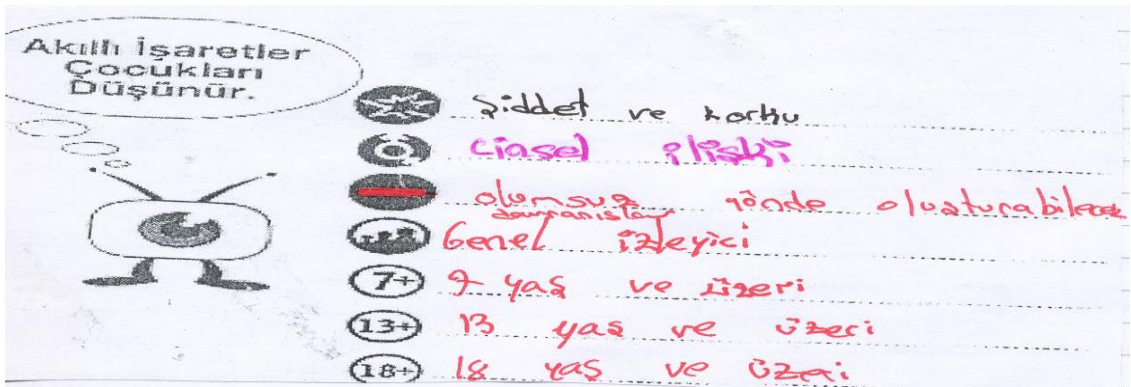 Akıllı İşaretler
Çocukları
Düşünür.
Şiddet ve korku
Ciasel ilişki
olumsuz yönde oluşturabilecek
davranışlar
Genel izleyici
7+ 7 yaş ve üzeri
13+ 13 yaş ve üzeri
18+ 18 yaş ve üzeri